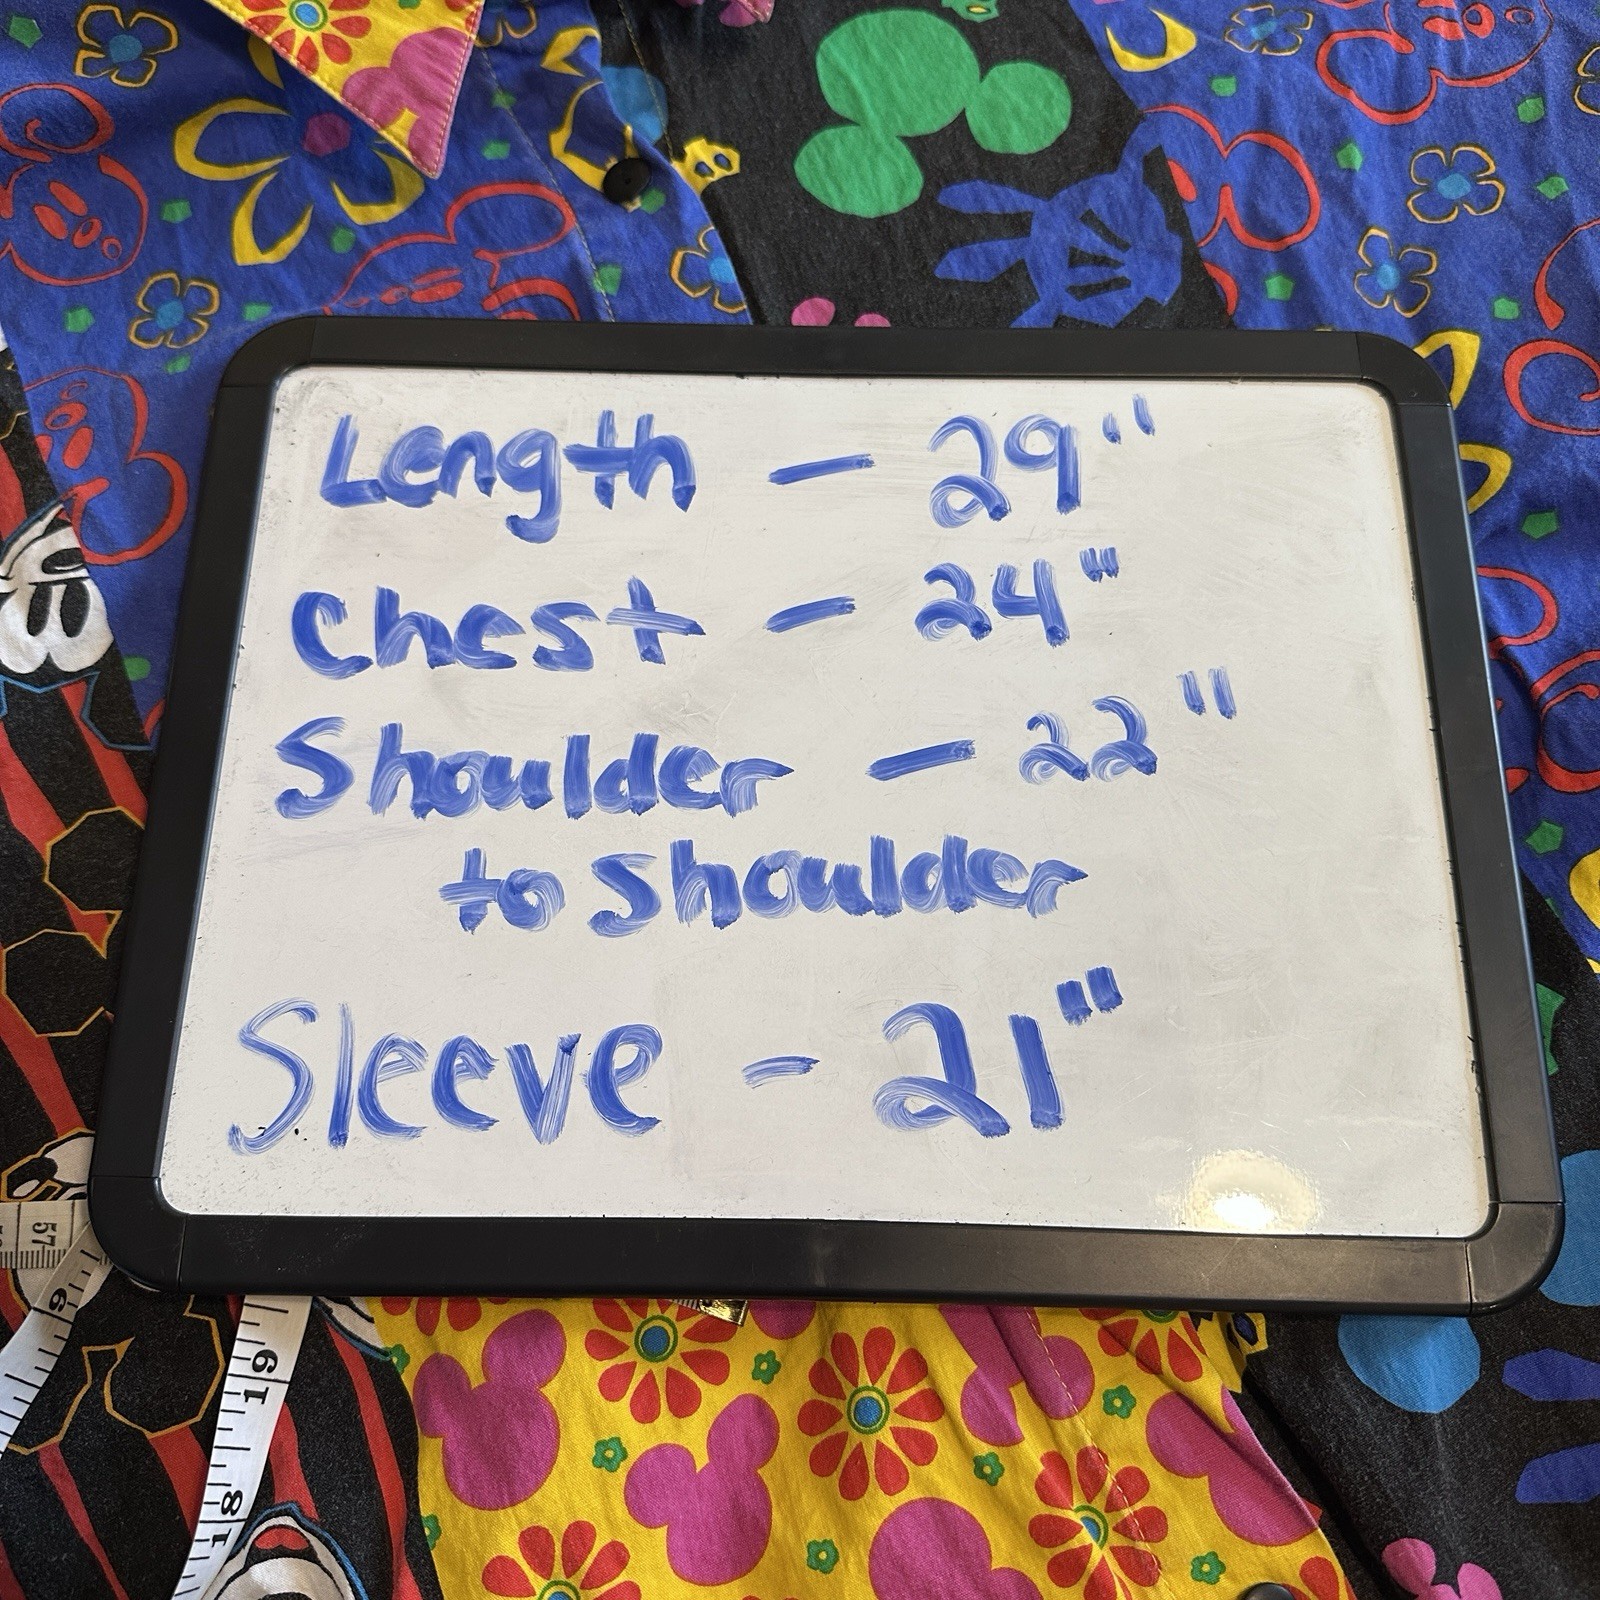 Length - 29"
Chest - 24"
Shoulder - 22"
to shoulder
Sleeve - 21"
57
6
19
18